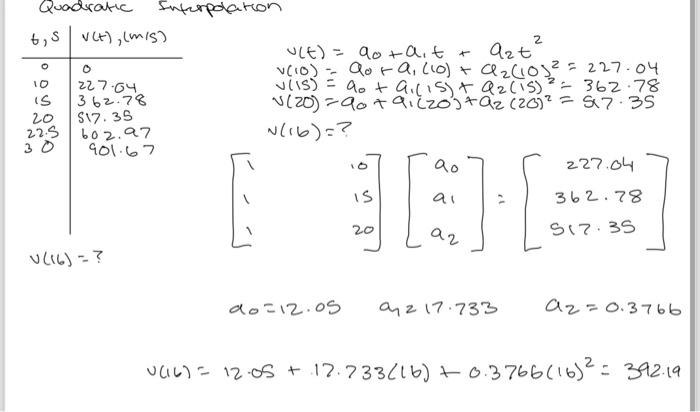 Quadratic Interpolation
t, s v(t), (m/s)
0 0
10 227.04
15 362.78
20 517.35
22.5 602.97
30 901.67
v(16) = ?
v(t) = a0 + a1t + a2t²
v(10) = a0 + a1(10) + a2(10)² = 227.04
v(15) = a0 + a1(15) + a2(15)² = 362.78
v(20) = a0 + a1(20) + a2(20)² = 517.35
v(16) = ?
[1 10] [a0] [227.04]
[1 15] [a1] = [362.78]
[1 20] [a2] [517.35]
a0 = 12.05 a1 = 17.733 a2 = 0.3766
v(16) = 12.05 + 17.733(16) + 0.3766(16)² = 392.19